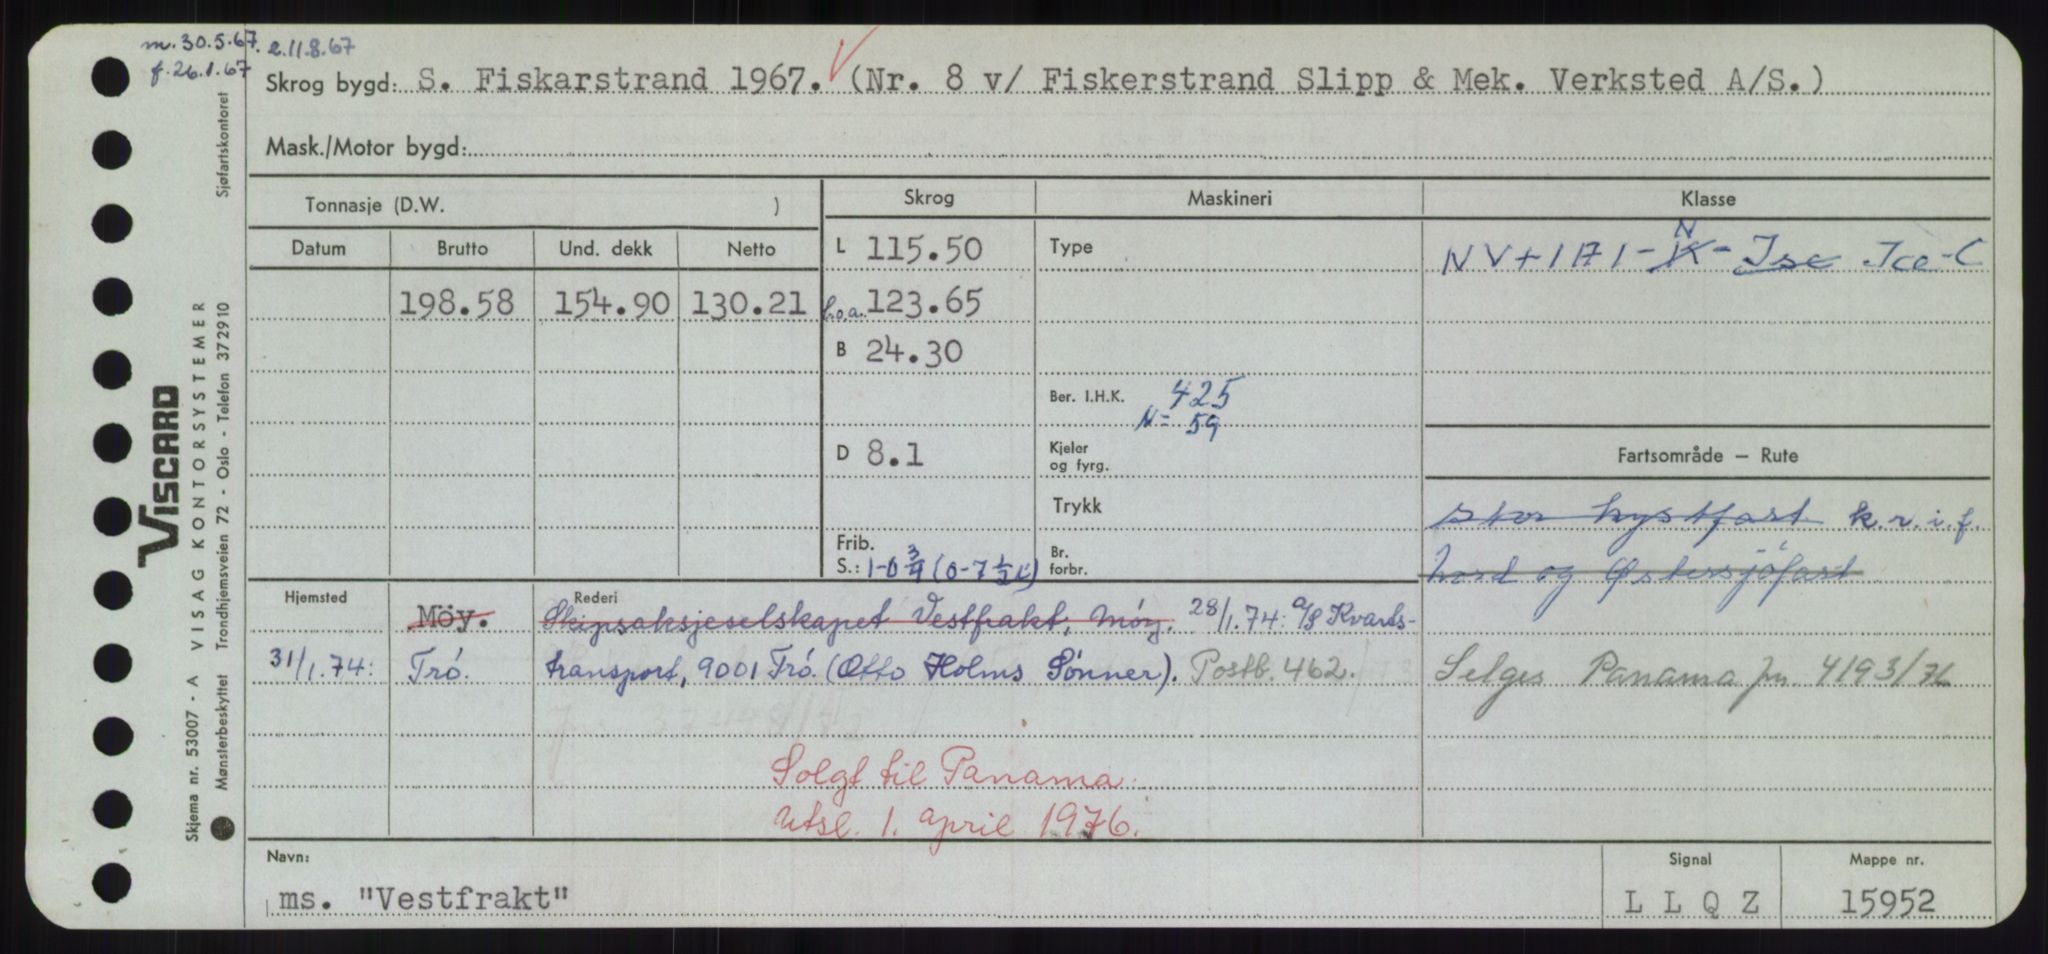 m. 30.5.67. e. 11.8.67
f. 26.1.67
Skrog bygd: S. Fiskarstrand 1967. (Nr. 8 v/ Fiskerstrand Slipp & Mek. Verksted A/S.)
Mask./Motor bygd:
Tonnasje (D.W. ) Skrog Maskineri Klasse
Datum Brutto Und. dekk Netto L 115.50 Type NV+1A1-K-Isc Ice-C
N
198.58 154.90 130.21 L.o.a. 123.65
B 24.30
Ber. I.H.K. 425
N = 59
D 8.1 Kjeler og fyrg. Fartsområde — Rute
Trykk stor kystfart k.r.i.f.
Frib. S.: 1-0 3/4 (0-7 1/2 L) Br. forbr. Nord og Østersjöfart
Hjemsted Möy. Rederi Skipsaksjeselskapet Vestfrakt, Möy. 28/1.74: A/S Kvarts-
31/1.74: Tró. transport, 9001 Tró. (Otto Holms Sönner). Postb. 462. Selges Panama jn. 4193/76
Solgt til Panama.
Utsl. 1. april 1976.
Navn: Signal Mappe nr.
ms. "Vestfrakt" L L Q Z 15952
VISCARD
Skjema nr. 53007 - A VISAG KONTORSYSTEMER
Mønsterbeskyttet Trondhjemsveien 72 - Oslo - Telefon 372910 Sjøfartskontoret